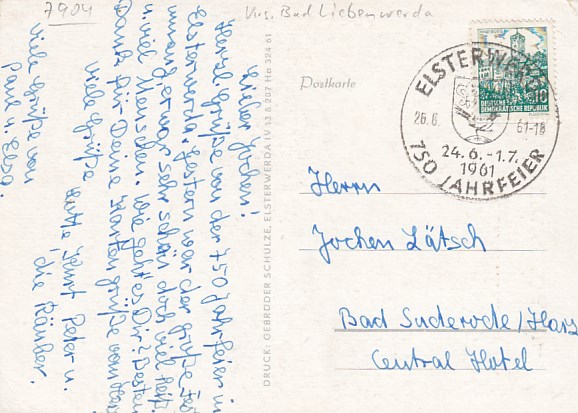 7904
Krs. Bad Liebenwerda
Lieber Jochen!
Herzl. Grüße von der 750 Jahrfeier in
Elsterwerda. Gestern war der große Fest-
umzug er war sehr schön doch viel
u. viel Menschen. Wie geht es Dir? Besten
Dank für Deine Kartengrüße vom
viele Grüße
Mutti, Horst Peter u.
die Räuber.
Viele Grüße von
Paul u. Elsa.
DRUCK: GEBRÜDER SCHULZE, ELSTERWERDA IV 13 8 207 Ha 324 61
Postkarte
ELSTERWERDA
26.6. 61-18
24.6.-1.7.
1961
750 JAHRFEIER
DEUTSCHE
DEMOKRATISCHE REPUBLIK
10
Herrn
Jochen Lätsch
Bad Suderode/Harz
Central Hotel